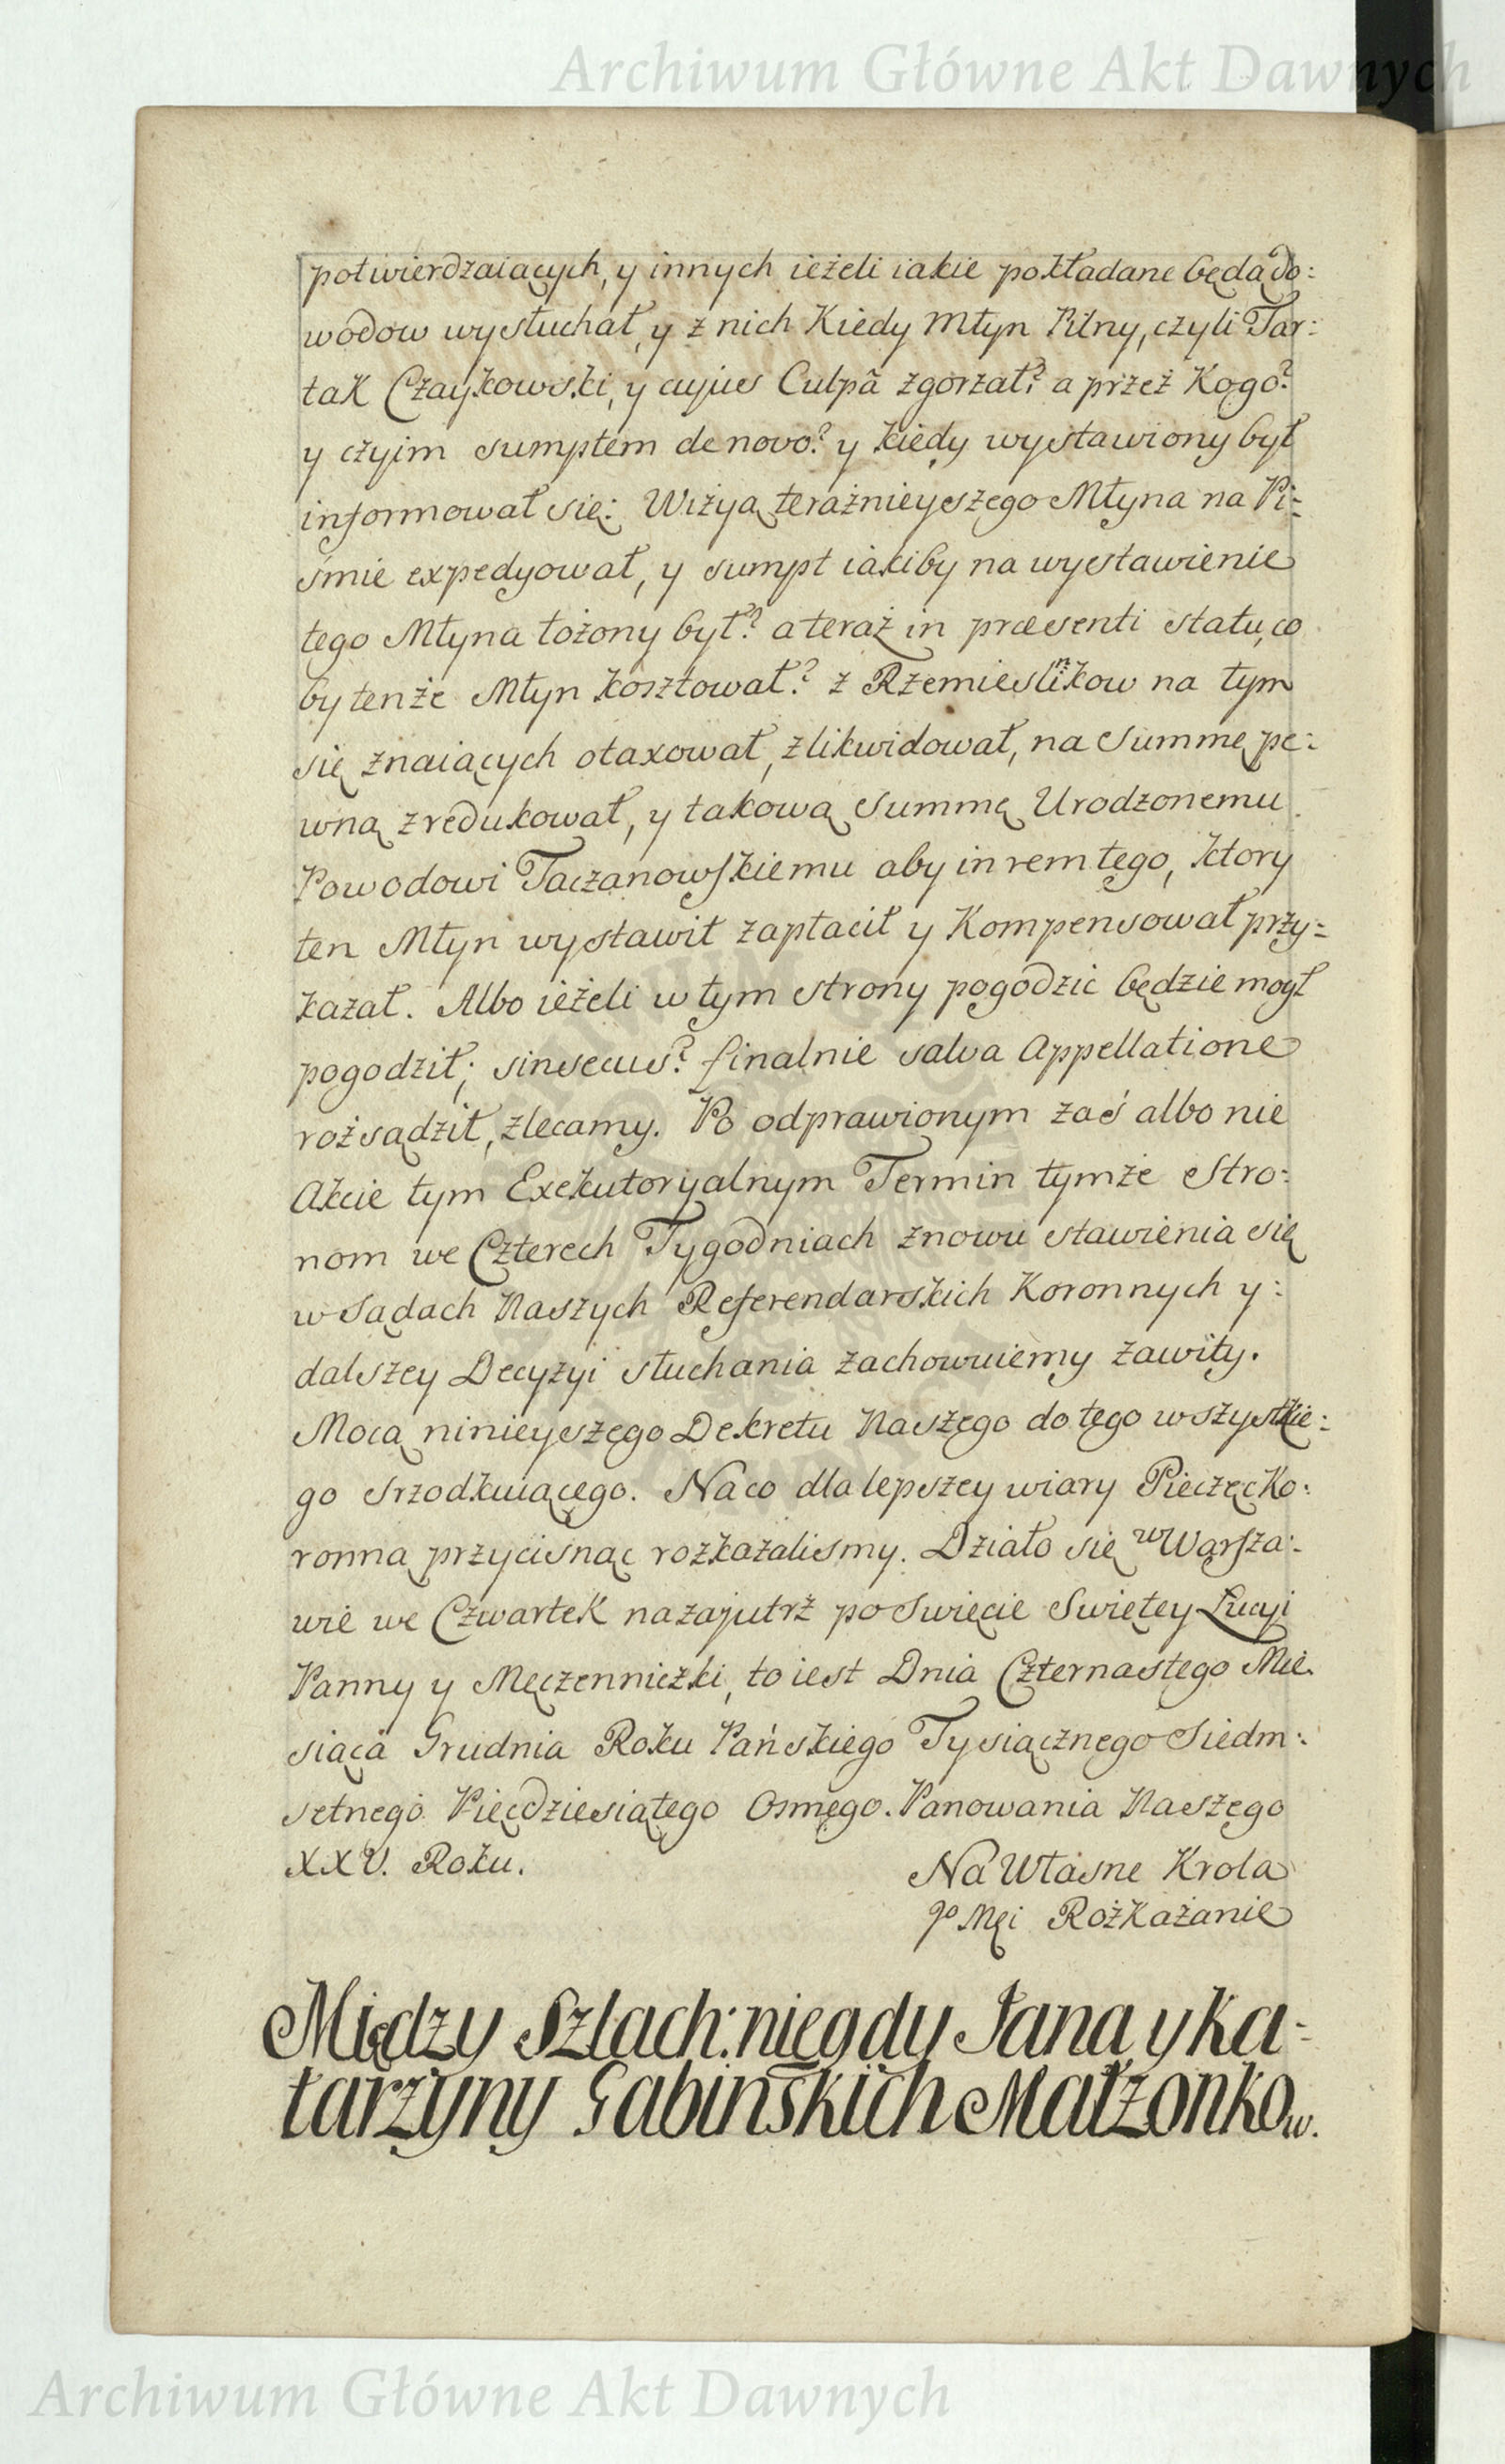 Archiwum Główne Akt Dawnych
potwierdzaiących, y innych ieżeli iakie pokładane będą do:
wodow wysłuchał, y z nich Kiedy Młyn Pilny, czyli Tar:
tak Czaykowski, y cujus Culpã zgorzał? a przez Kogo?
y czyim sumptem de novo? y kiedy wystawiony był
informował się: Wizyą teraznieyszego Młyna na Pi:
śmie expedyował, y sumpt iakiby na wystawienie
tego Młyna łożony był? a teraz in præsenti statu, co
by tenże Młyn kosztował? z Rzemieslnikow na tym
się znaiących otaxował, zlikwidował, na Summę pe:
wną zredukował, y takową Summę Urodzonemu
Powodowi Taczanowskiemu aby in rem tego, ktory
ten Młyn wystawił zapłacił y Kompensował przy:
kazał. Albo ieżeli w tym strony pogodzic będzie mogł
pogodził; sinsecus? finalnie salva Appellatione
rozsądził, zlecamy. Po odprawionym zaś albo nie
Akcie tym Exekutoryalnym Termin tymże Stro:
nom we Czterech Tygodniach znowu stawienia się
w Sądach Naszych Referendarskich Koronnych y:
dalszey Decyzyi słuchania zachowuiemy zawity.
Mocą ninieyszego Dekretu Naszego do tego wszystkie:
go srzodkuiącego. Na co dla lepszey wiary Pieczęc Ko:
ronną przycisnąc rozkazalismy. Działo się w Warsza:
wie we Czwartek nazajutrz po Swięcie Swiętey Lucyi
Panny y Męczenniczki, to iest Dnia Czternastego Mie:
siąca Grudnia Roku Pańskiego Tysiącznego Siedm:
setnego Pięcdziesiątego Osmego. Panowania Naszego
XXV. Roku.
Na Własne Krola
Jº Mci Rozkazanie
Między Szlach: niegdy Jana y Ka-
tarzyny Gabinskich Małzonkow.
Archiwum Główne Akt Dawnych